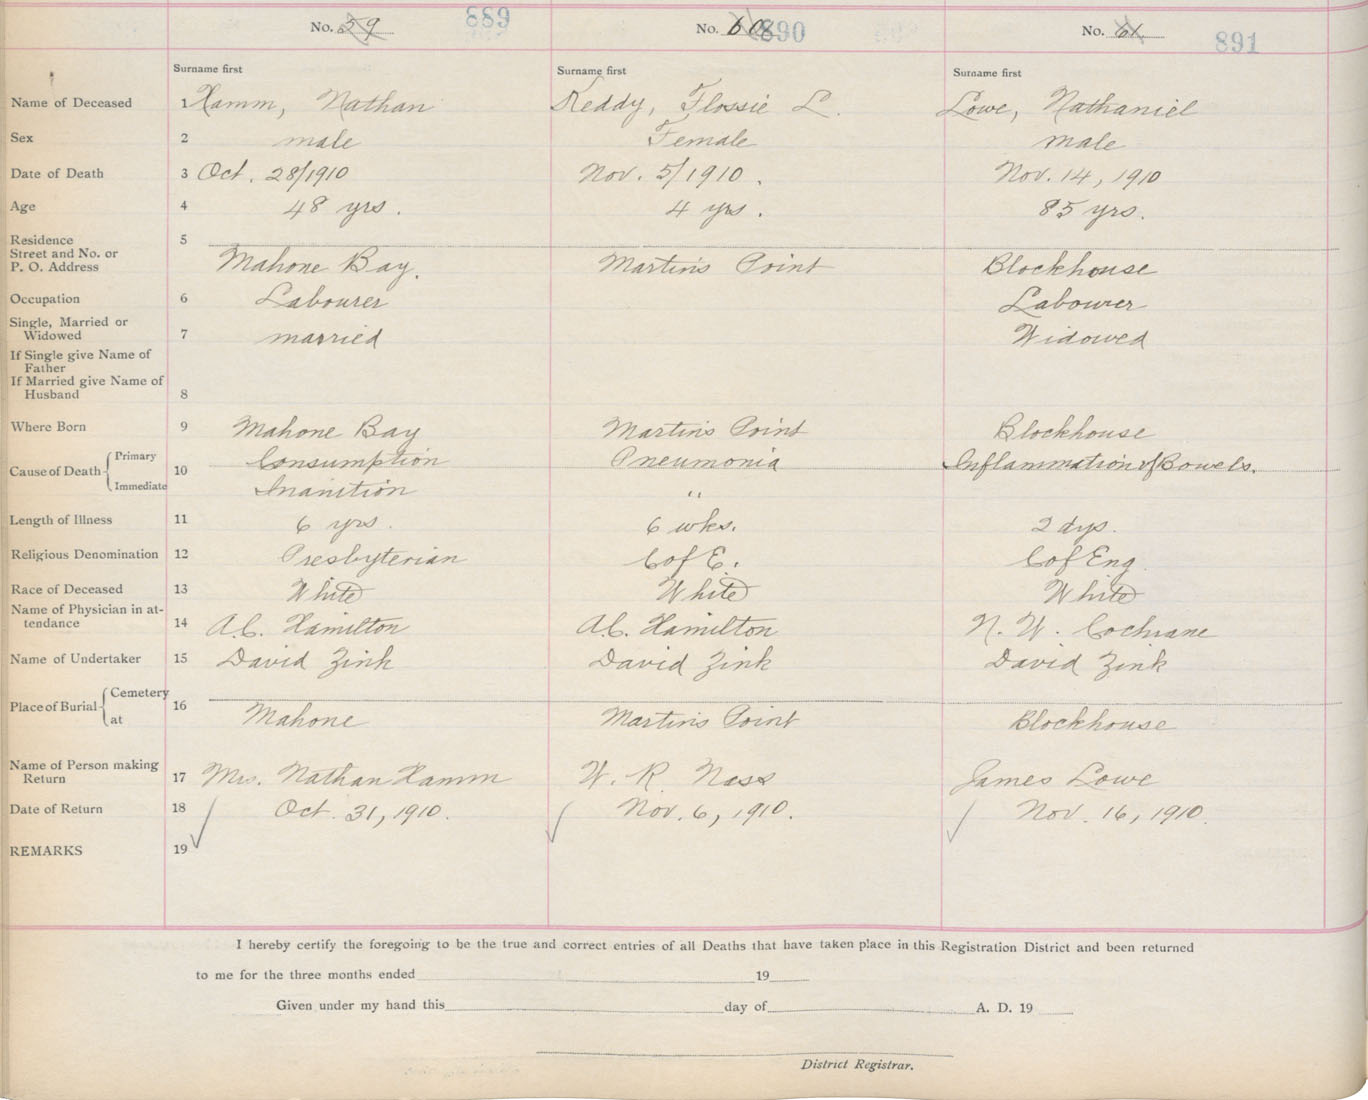 No. 59 889 No. 60 890 No. 61 891
Surname first Surname first Surname first
Name of Deceased 1 Hamm, Nathan Reddy, Flossie L. Lowe, Nathaniel
Sex 2 male Female male
Date of Death 3 Oct. 28/1910 Nov. 5/1910. Nov. 14, 1910
Age 4 48 yrs. 4 yrs. 85 yrs.
Residence 5
Street and No. or
P. O. Address Mahone Bay. Martins Point Blockhouse
Occupation 6 Labourer Labourer
Single, Married or
Widowed 7 married Widowed
If Single give Name of
Father
If Married give Name of
Husband 8
Where Born 9 Mahone Bay Martins Point Blockhouse
Cause of Death Primary 10 Consumption Pneumonia Inflammation of Bowels.
Immediate Inanition "
Length of Illness 11 6 yrs. 6 wks. 2 dys.
Religious Denomination 12 Presbyterian C of E. C of Eng.
Race of Deceased 13 White White White
Name of Physician in at-
tendance 14 A.C. Hamilton A.C. Hamilton N. W. Cochrane
Name of Undertaker 15 David Zink David Zink David Zink
Place of Burial Cemetery 16
at Mahone Martins Point Blockhouse
Name of Person making
Return 17 Mrs. Nathan Hamm W. R. Nass James Lowe
Date of Return 18 Oct. 31, 1910. Nov. 6, 1910. Nov. 16, 1910.
REMARKS 19
I hereby certify the foregoing to be the true and correct entries of all Deaths that have taken place in this Registration District and been returned
to me for the three months ended 19
Given under my hand this day of A. D. 19
District Registrar.